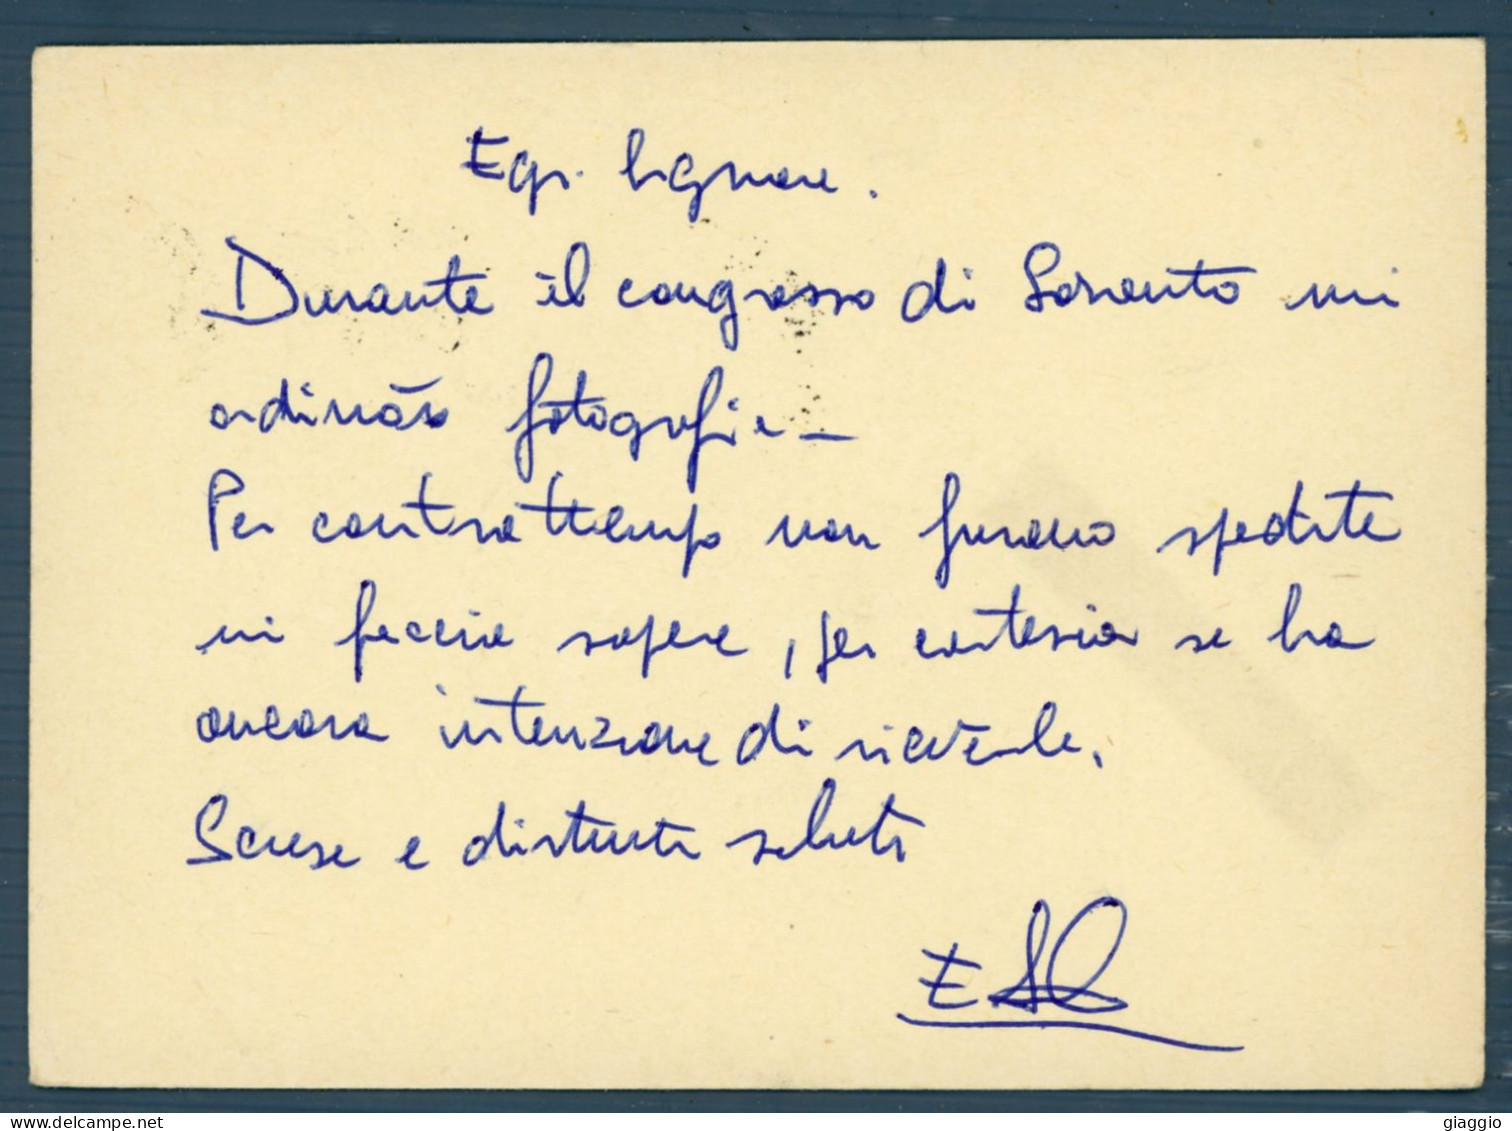 Egr. Signore.
Durante il congresso di Sorrento mi
ordinò fotografie –
Per contrattempo non furono spedite
mi faccia sapere, per cortesia se ha
ancora intenzione di riceverle.
Scuse e distinti saluti
delcampe.net
giaggio